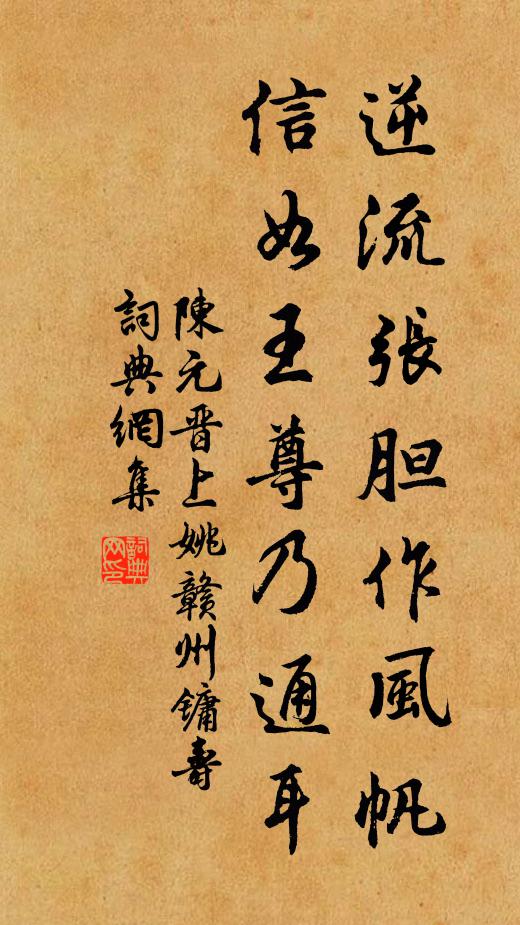 逆流張胆作風帆
信如王尊乃通耳
陳元晋上姚贛州鏞壽
詞典網集
詞典网印